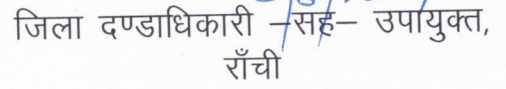 जिला दण्डाधिकारी –सह– उपायुक्त,
राँची